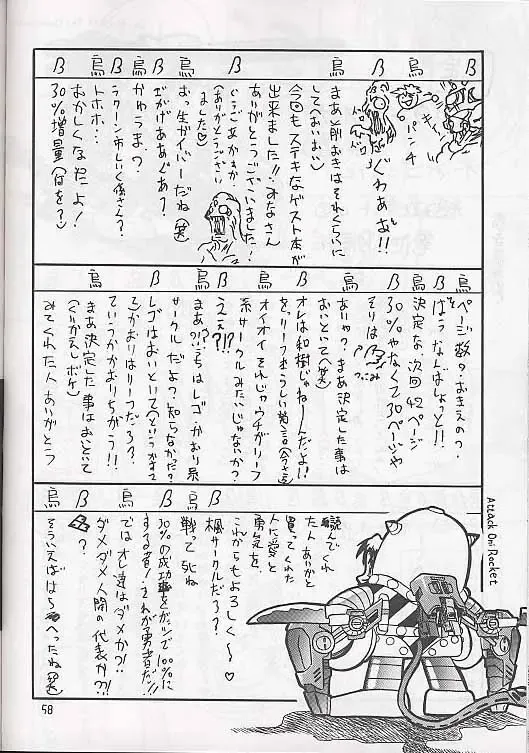 ß
ぐわああぁ!!
パンチ
烏
まあと前おきはそれくらいに
してへおいおい
今回もステキなゲスト本が
出来ました!!みなさん
ありがとうございました!
ß
(ありがとうござい
ました♡
烏
おっ生ガイバーだね(笑)
ß
烏
かゆうま?
ß
ラクーン市しいく係さん?
烏
トホホ…
おかしくなったよ!
ß
30%増量(何を?)
烏
ページ数?おきえの?
ß
ばっ!なんばしょっと!!
決定な、次回42ページ
30%やなくて30ページや
烏
そりは
つっこみ
ß
ありゃ?まあ決定した事は
おいといて(笑)
オレは和樹じゃねーんだよ!!
烏
オイオイそれじゃウチがリーフ
系サークルみたいじゃないか?
ß
ええ?!?!
烏
まあ?!うちはレゴかおり系
サークルだよっ知らなかった?
ß
レゴはおいといて(というかすて
かおりはリーフだろ?
烏
ていうかかおりちがう!!
ß
まあ決定した事はおといて
(くりかえしボケ)
烏
みてくれた人ありがとう
ß
読んでくれ
た人ありがと
買ってくれた
人に愛と
勇気を、
これからもよろしく〜♡
烏
楓サークルだろ?
ß
戦って死ね
30%の成功率をガッツで100%に
する者!それが勇者だ!!
烏
ではオレ達はダメか?!
ß
ダメダメ人間の代表か?!
烏
?
ß
そういえばはらへったね(笑)
Attack On! Rocket
58